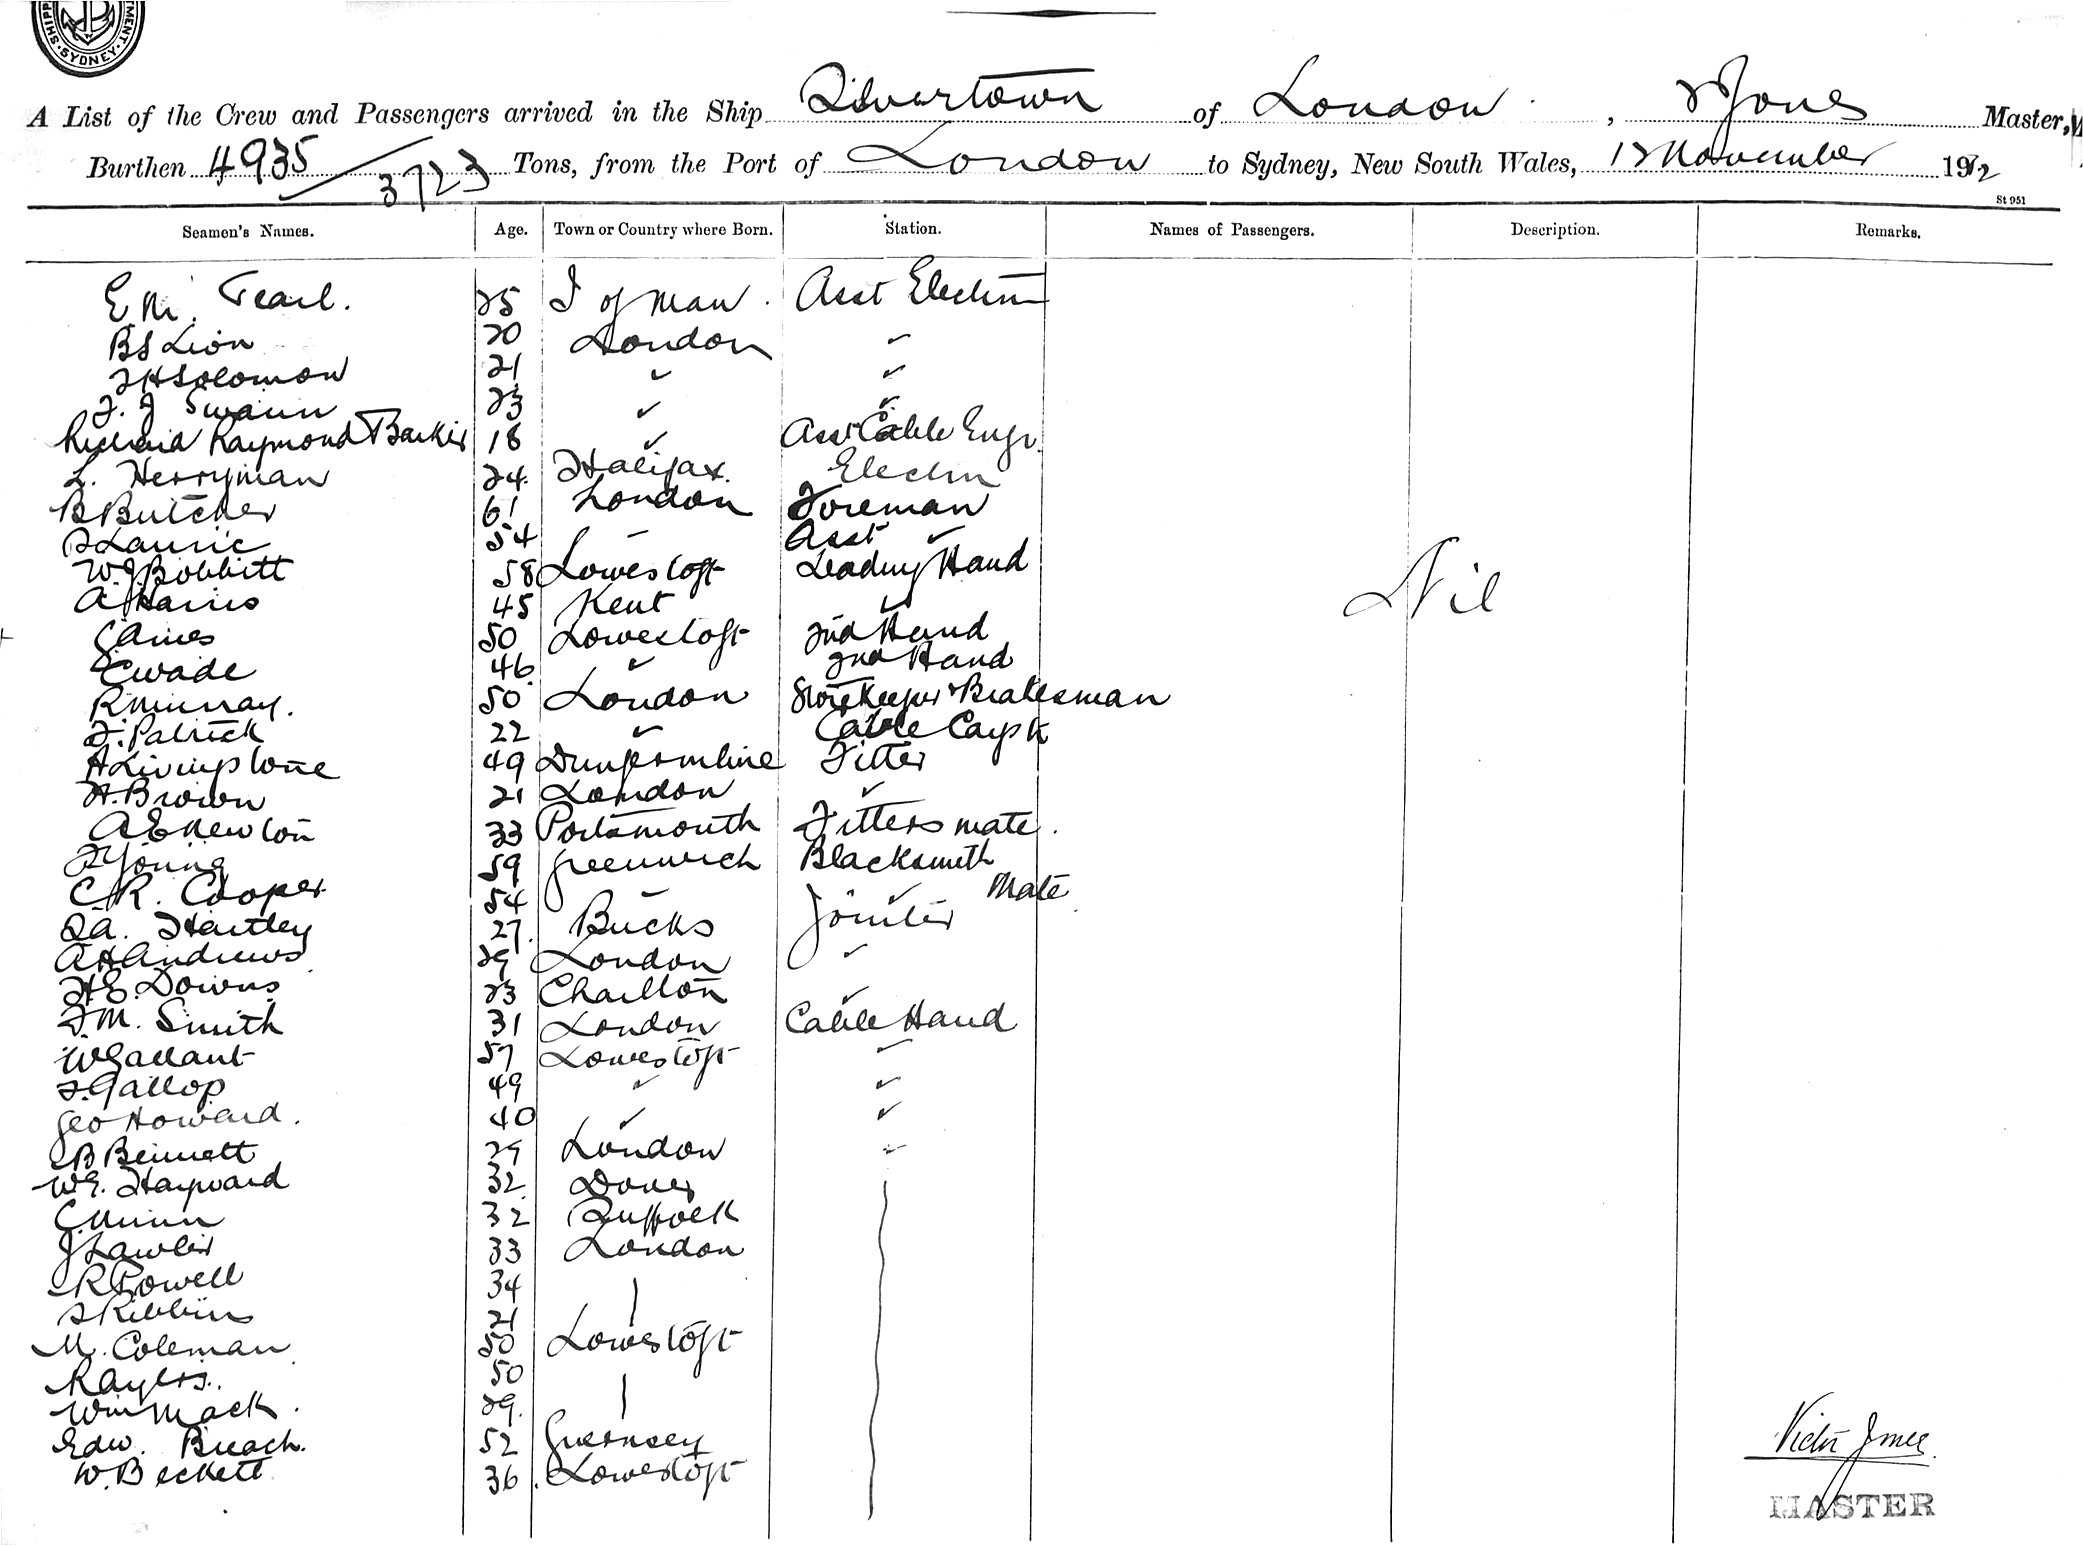 SHIPP MENT. SYDNEY.
A List of the Crew and Passengers arrived in the Ship Silvertown of London, V Jones Master,
Burthen 4935/3723 Tons, from the Port of London to Sydney, New South Wales, 12 November 1912
St 951
Seamen's Names. Age. Town or Country where Born. Station. Names of Passengers. Description. Remarks.
E M. Pearl. 25 I of Man. Asst Electn
B S Lion 20 London "
H Solomon 21 " "
F. J Swann 23 " "
Richard Raymond Barker 18 " Asst Cable Engr.
L. Herryman 24. Halifax. Electn
B Butcher 61 London Foreman
Laurie 54 " Asst "
W. J. Bobbitt 58 Lowestoft Leading Hand
A Harris 45 Kent "
Nil
C Aines 50 Lowestoft 2nd Hand
E Wade 46 " 2nd Hand
R Murray. 50 London Storekeeper & Brakesman
F. Patrick 22 " Cable Capt
A Livingstone 49 Dunfermline Fitter
H. Brown 21 London "
A E Newton 33 Portsmouth Fitters mate.
Young 59 Greenwich Blacksmith
C. R. Cooper 54 " " Mate
S A. Hartley 27. Bucks Jointer
A H Andrews 29 London "
H E. Downs 23 Charlton "
F M. Smith 31 London Cable Hand
W Gallant 57 Lowestoft "
F. Gallop 49 " "
Geo Howard. 40 " "
B Bennett 29 London "
W E. Hayward 32 Dover
C Munn 32 Suffolk
J Lawler 33 London
R Powell 34
S Ribbins 21
M. Coleman 50 Lowestoft
R Ayers. 50
Wm Mack. 29.
Edw. Breach. 52 Guernsey
W. Beckett 36. Lowestoft
Victor Jones.
MASTER